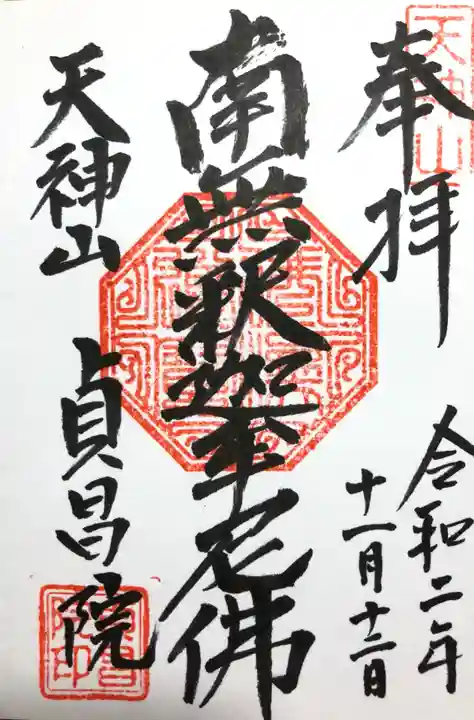 天神山
奉拝
令和二年
十一月十二日
南無釈迦牟尼佛
天神山
貞昌院